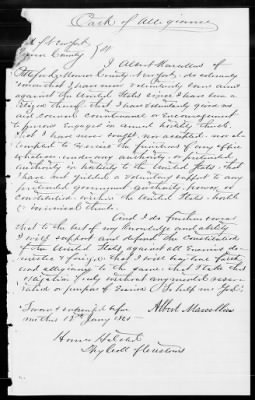 Oath of Allegiance
I Albert Marcellus of
County New York, do solemnly
swear that I have never voluntarily borne arms
against the United States since I have been a
citizen thereof, that I have voluntarily given no
aid, counsel, countenance or encouragement
to persons engaged in armed hostility thereto,
that I have never sought nor accepted nor at-
tempted to exercise the functions of any office
whatever under any authority or pretended
authority in hostility to the United States, that
I have not yielded a voluntary support to any
pretended government, authority, power or
Constitution within the United States hostile
or inimical thereto.
And I do further swear
that to the best of my knowledge and ability
I will support and defend the Constitution
of the United States, against all Enemies do-
mestic & foreign, that I will bear true faith
and allegiance to the same, that I take this
obligation freely without any mental reser-
vation or purpose of Evasion So help me God.
Albert Marcellus
Sworn & subscribed before
me this 13th Jany